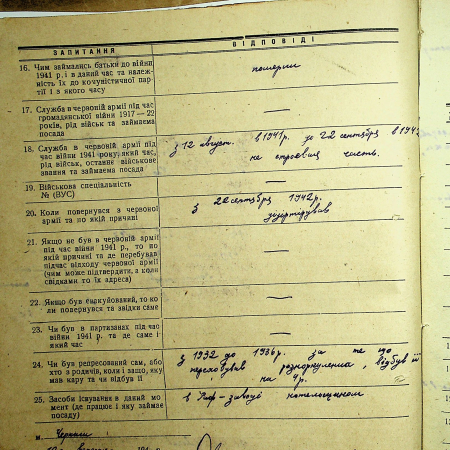 ЗАПИТАННЯ
ВІДПОВІДІ
16. Чим займались батьки до війни
1941 р. і в даний час та належ-
ність їх до комуністичної пар-
тії і з якого часу
померли
17. Служба в червоній армії під час
громадянської війни 1917—22
років, рід військ та займаєма
посада
—
18. Служба в червоній армії під
час війни 1941 року, який час,
рід військ, останнє військове
звання та займаєма посада
з 12 август. в 1941р. до 22 сентября в 1942
не строевих часть.
19. Військова спеціальність
№ (ВУС)
—
20. Коли повернувся з червоної
армії та по якій причині
з 22 сентября 1942р.
дизертирував
21. Якщо не був в червоній армії
під час війни 1941 р., то по
якій причині та де перебував
підчас відходу червоної армії
(чим може підтвердити, а коли
свідками то їх адреса)
—
22. Якщо був евакуйований, то ко-
ли повернувся та звідки саме
—
23. Чи був в партизанах під час
війни 1941 р. та де саме і
який час
—
24. Чи був репресований сам, або
хто з родичів, коли і защо, яку
мав кару та чи відбув її
з 1932 до 1936р. за те що
переховував розкуркулена, відбув її
на 4р.
25. Засоби існування в даний мо-
мент (де працює і яку займає
посаду)
в Реф-заводі котельщиком
м.
194